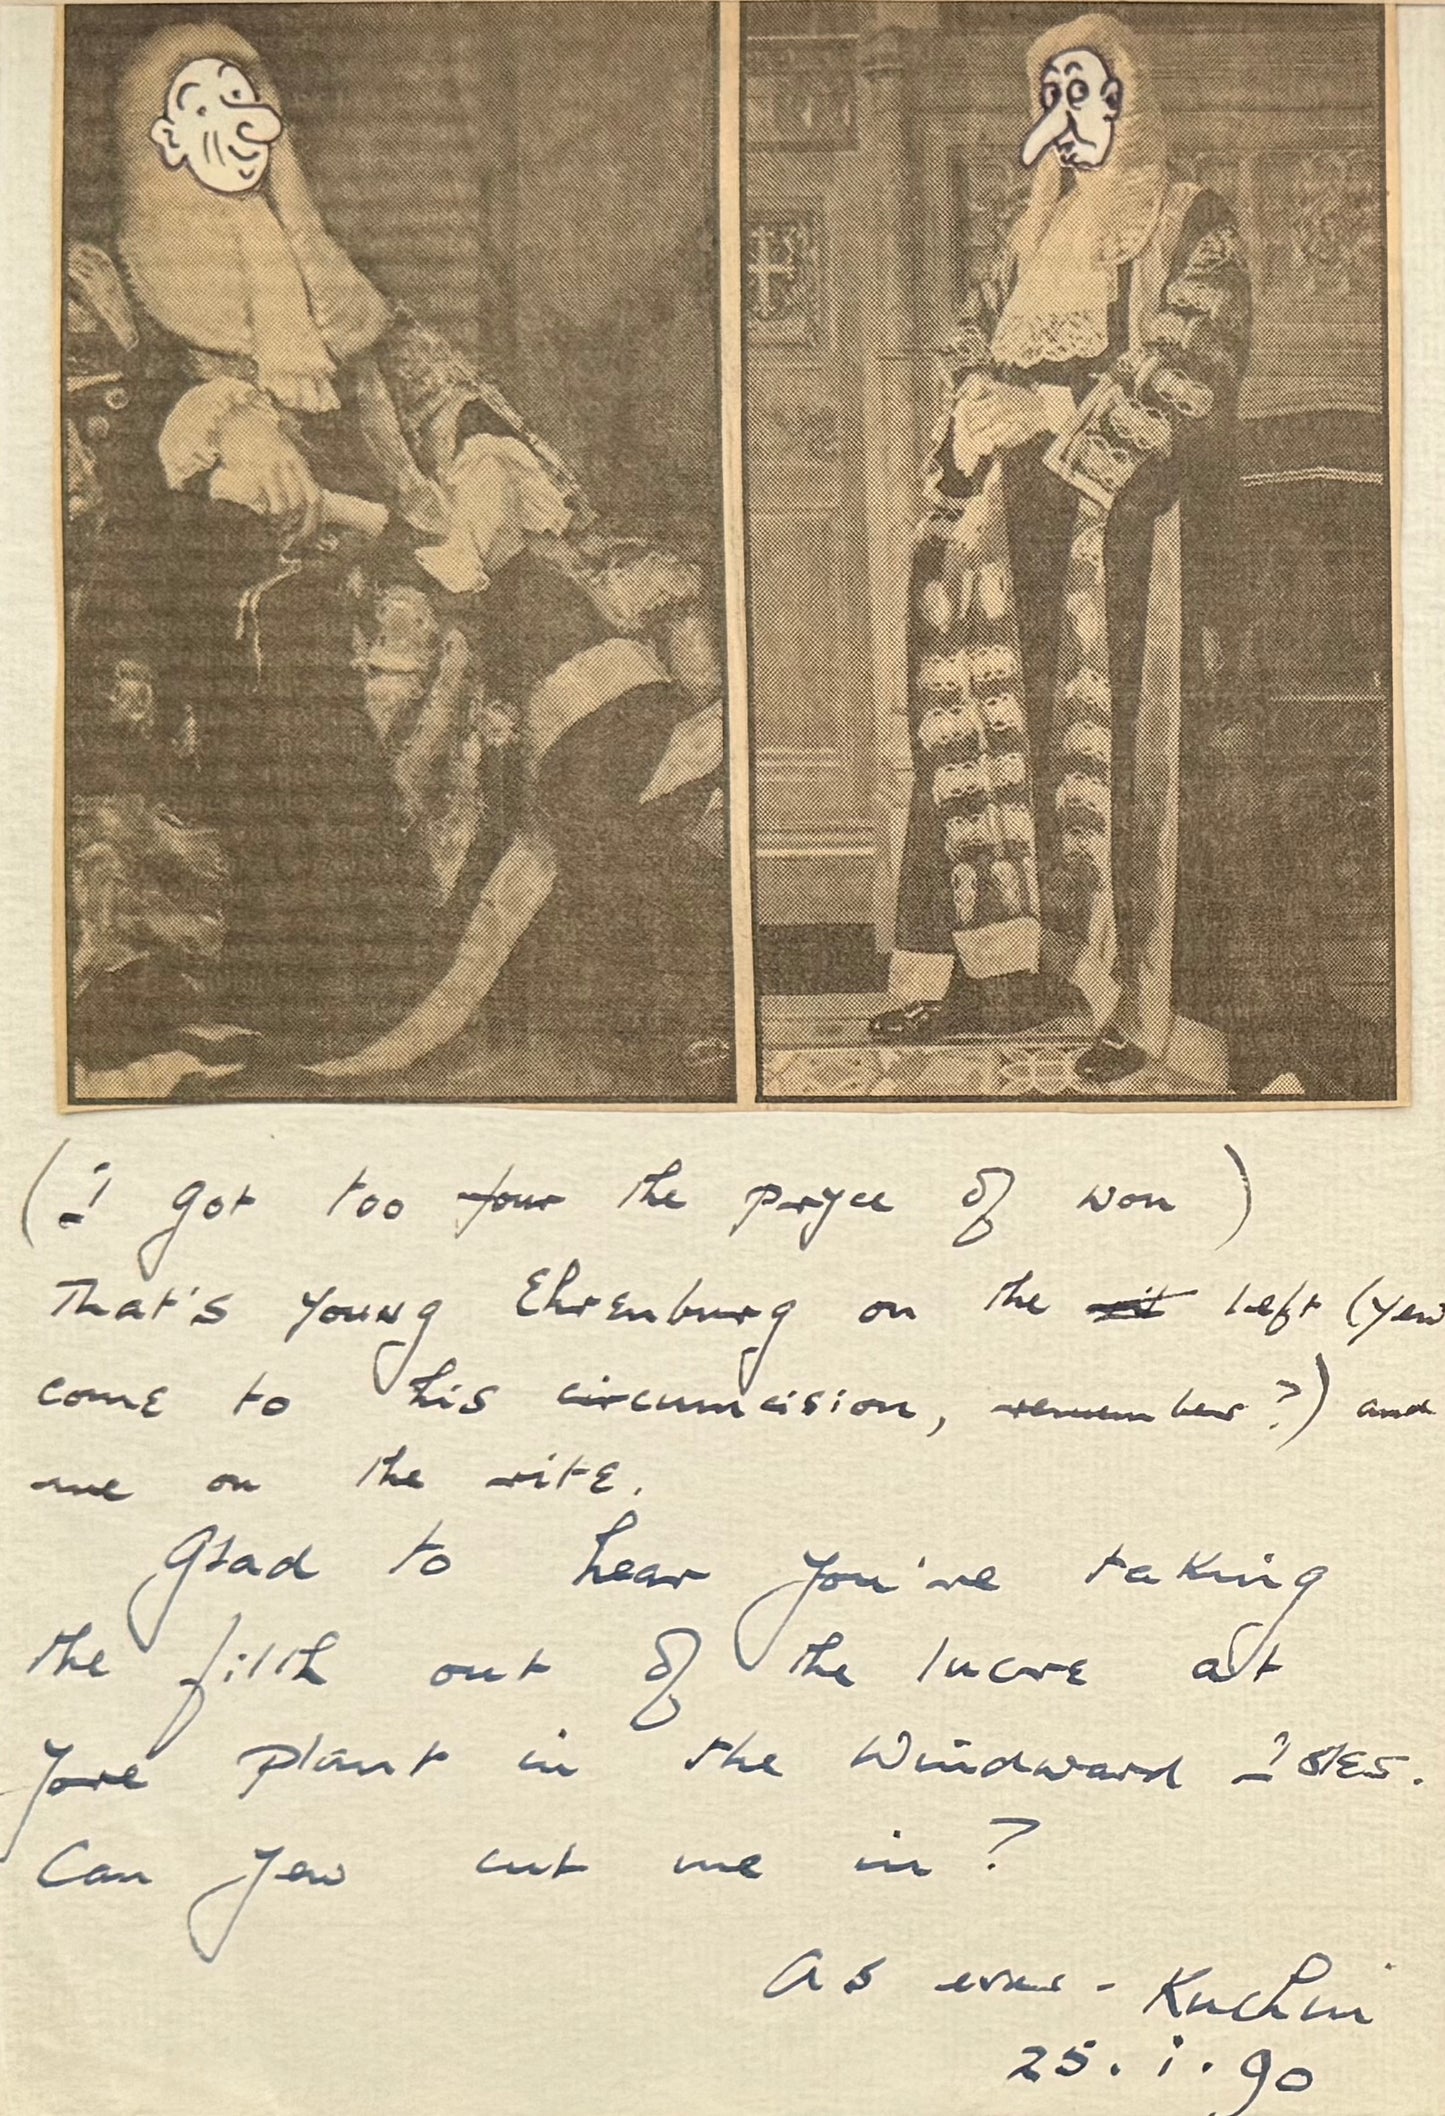 (I got too four the pryce of won)
That's young Ehrenburg on the left (yew
come to his circumcision, remember?) and
me on the rite.
Glad to hear you're taking
the filth out of the lucre at
yore plant in the Windward Isles.
Can yew cut me in?
As ever - Kuchin
25.i.90